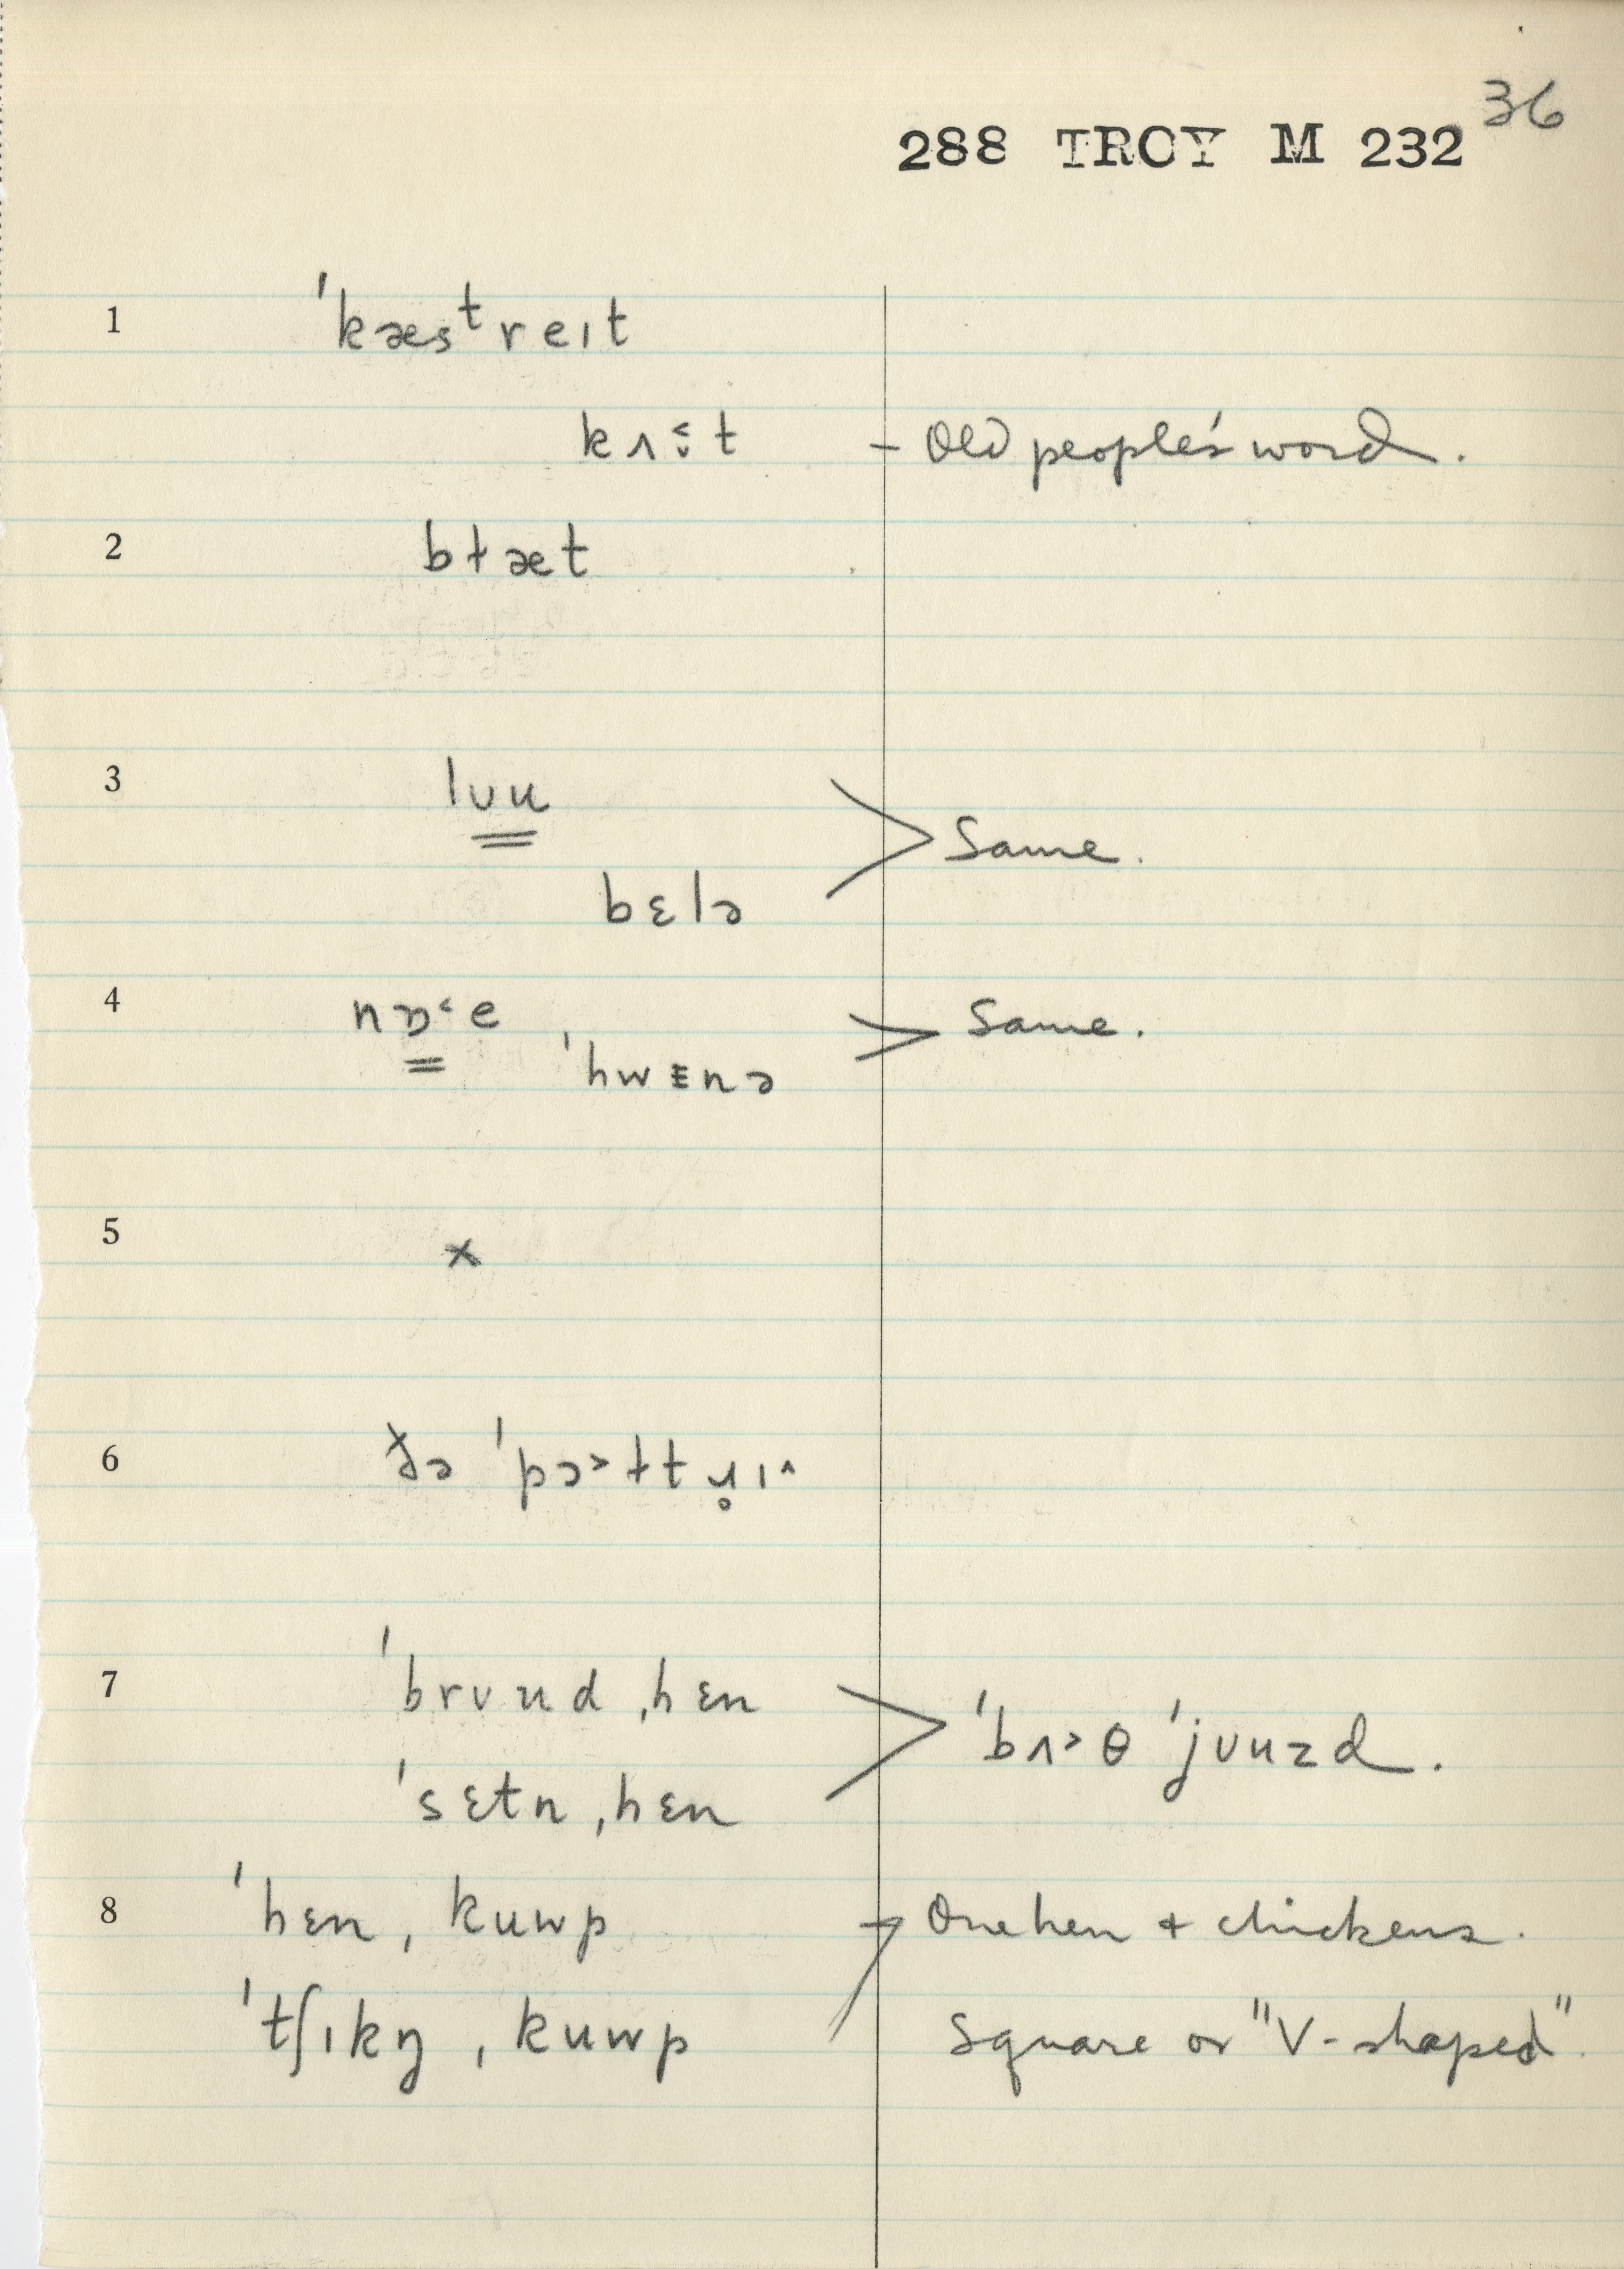 36
288 TROY M 232
1 ˈkæsᵗreɪt
kʌ˂̬t – Old people's word.
2 bɫæt
3 lʊu
> Same.
bɛlə
4 nɒ˂e, > Same.
ˈhwɛnə
5 x
6 ðə ˈpɔ˃ɫtɹ̥ɪ˄
7 ˈbrʊud ˌhɛn
> ˈbʌ˃θ ˈjʊuzd.
ˈsɛtn ˌhɛn
8 ˈhɛn ˌkuwp → One hen + chickens.
ˈtʃɪkŋ ˌkuwp Square or "V-shaped".